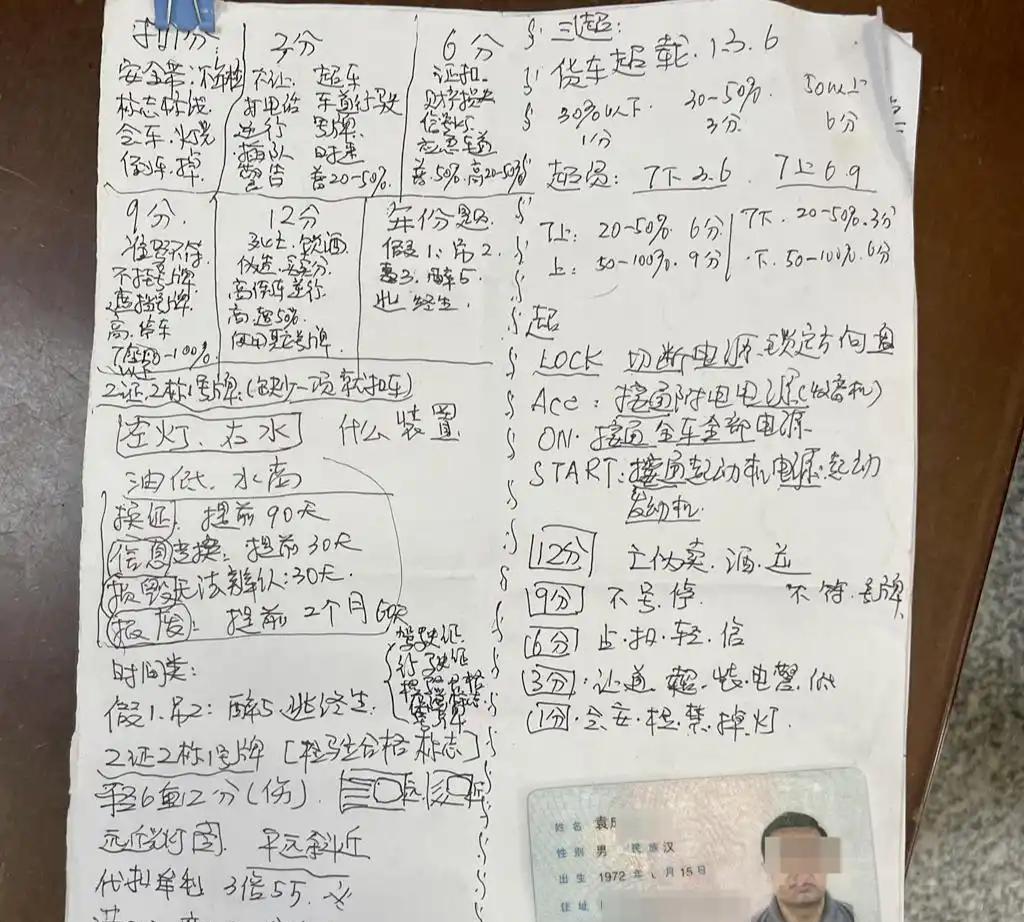 扣1分:
安全带:
标志标线
会车.灯光
倒车.掉
3分
不让. 超车
打电话 车道行驶
逆行 号牌
插队 时速
警告 普20-50%.
6分
证扣.
财产损失
信号灯
应急车道
普.50% 高20-50%
9分.
准驾不符
不挂号牌
遮挡号牌
高.停车
12分
伪造.买卖分
高停车逆行
高.超50%
使用 号牌.
年份题
假1:吊2.
醉5.
逃 终生.
2证2标1号牌:(缺少一项就扣车)
左灯、右水 什么装置
油低、水高
换证: 提前90天
信息变换: 提前30天
损毁无法辨认:30天.
报废: 提前2个月 60天
驾驶证
行驶证
时间类:
假1.吊2: 醉5、逃终生.
2证2标1号牌 [检验合格标志]
轻6重12分(伤).
远近光灯图. 平远斜近
代扣牟利 3倍5万.
三超:
货车超载.1.3.6
30%以下 30-50%. 50以上
1分 3分 6分
超员: 7下3.6 7上6.9
7上: 20-50% 6分 7下.20-50%.3分
上: 50-100%.9分 .下.50-100%.6分
超
LOCK 切断电源.锁定方向盘
Acc: 接通附电电源(收音机)
ON. 接通全车全部电源
START:接通起动机电源.起动
发动机.
12分 亡伪卖.酒.逆
9分 不.号.停. 不符.号牌
6分 占.扣.轻.信
3分.让道.超.装.电警.低
1分.会安.检.禁.掉灯.
姓名 袁
性别 男 民族 汉
出生 1972年 月15日
住址